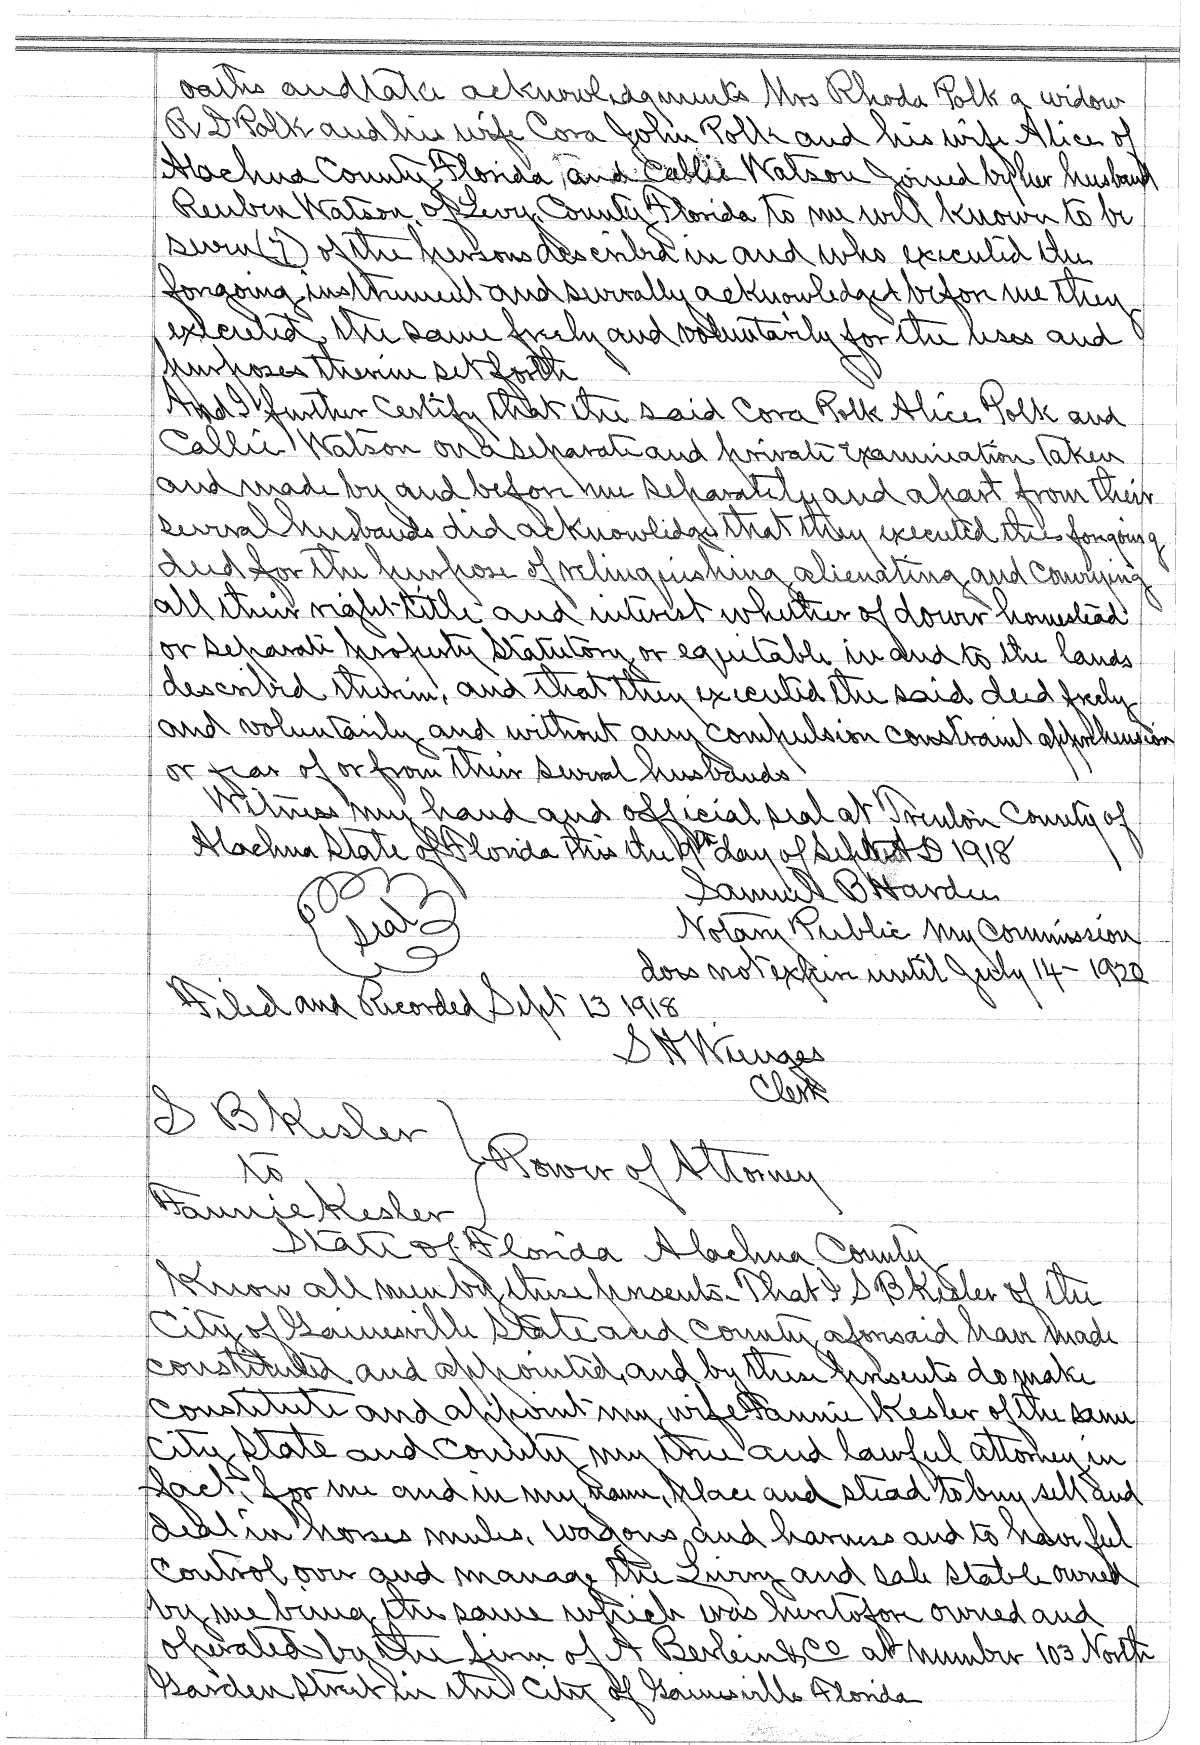 oaths and take acknowledgments Mrs Rhoda Polk a widow
R D Polk and his wife Cora John Polk and his wife Alice of
Alachua County Florida, and Callie Watson joined by her husband
Reuben Watson of Levy County Florida to me well known to be
seven (7) of the persons described in and who executed the
foregoing instrument and severally acknowledged before me they
executed the same freely and voluntarily for the uses and
purposes therein set forth
And I further certify that the said Cora Polk Alice Polk and
Callie Watson on a separate and private examination taken
and made by and before me separately and apart from their
several husbands did acknowledge that they executed the foregoing
deed for the purpose of relinquishing alienating and conveying
all their right title and interest whether of dower homestead
or separate property statutory or equitable in and to the lands
described therein, and that they executed the said deed freely
and voluntarily and without any compulsion constraint apprehension
or fear of or from their several husbands
Witness my hand and official seal at Trenton County of
Alachua State of Florida this the 9th day of Sept A D 1918
Samuel B Hardee
Seal
Notary Public My Commission
does not expire until July 14 - 1920
Filed and Recorded Sept 13 1918
S H Wienges
Clerk
S B Kesler
to } Power of Attorney
Fannie Kesler
State of Florida Alachua County
Know all men by these presents. That I S B Kesler of the
City of Gainesville State and County aforesaid have made
constituted and appointed, and by these presents do make
constitute and appoint my wife Fannie Kesler of the same
City State and County my true and lawful attorney in
fact, for me and in my name, place and stead to buy sell and
deal in horses mules, wagons and harness and to have full
control over and manage the Livery and sale stable owned
by me being the same which was heretofore owned and
operated by the firm of A Berlein & Co at number 103 North
Garden Street in the City of Gainesville Florida